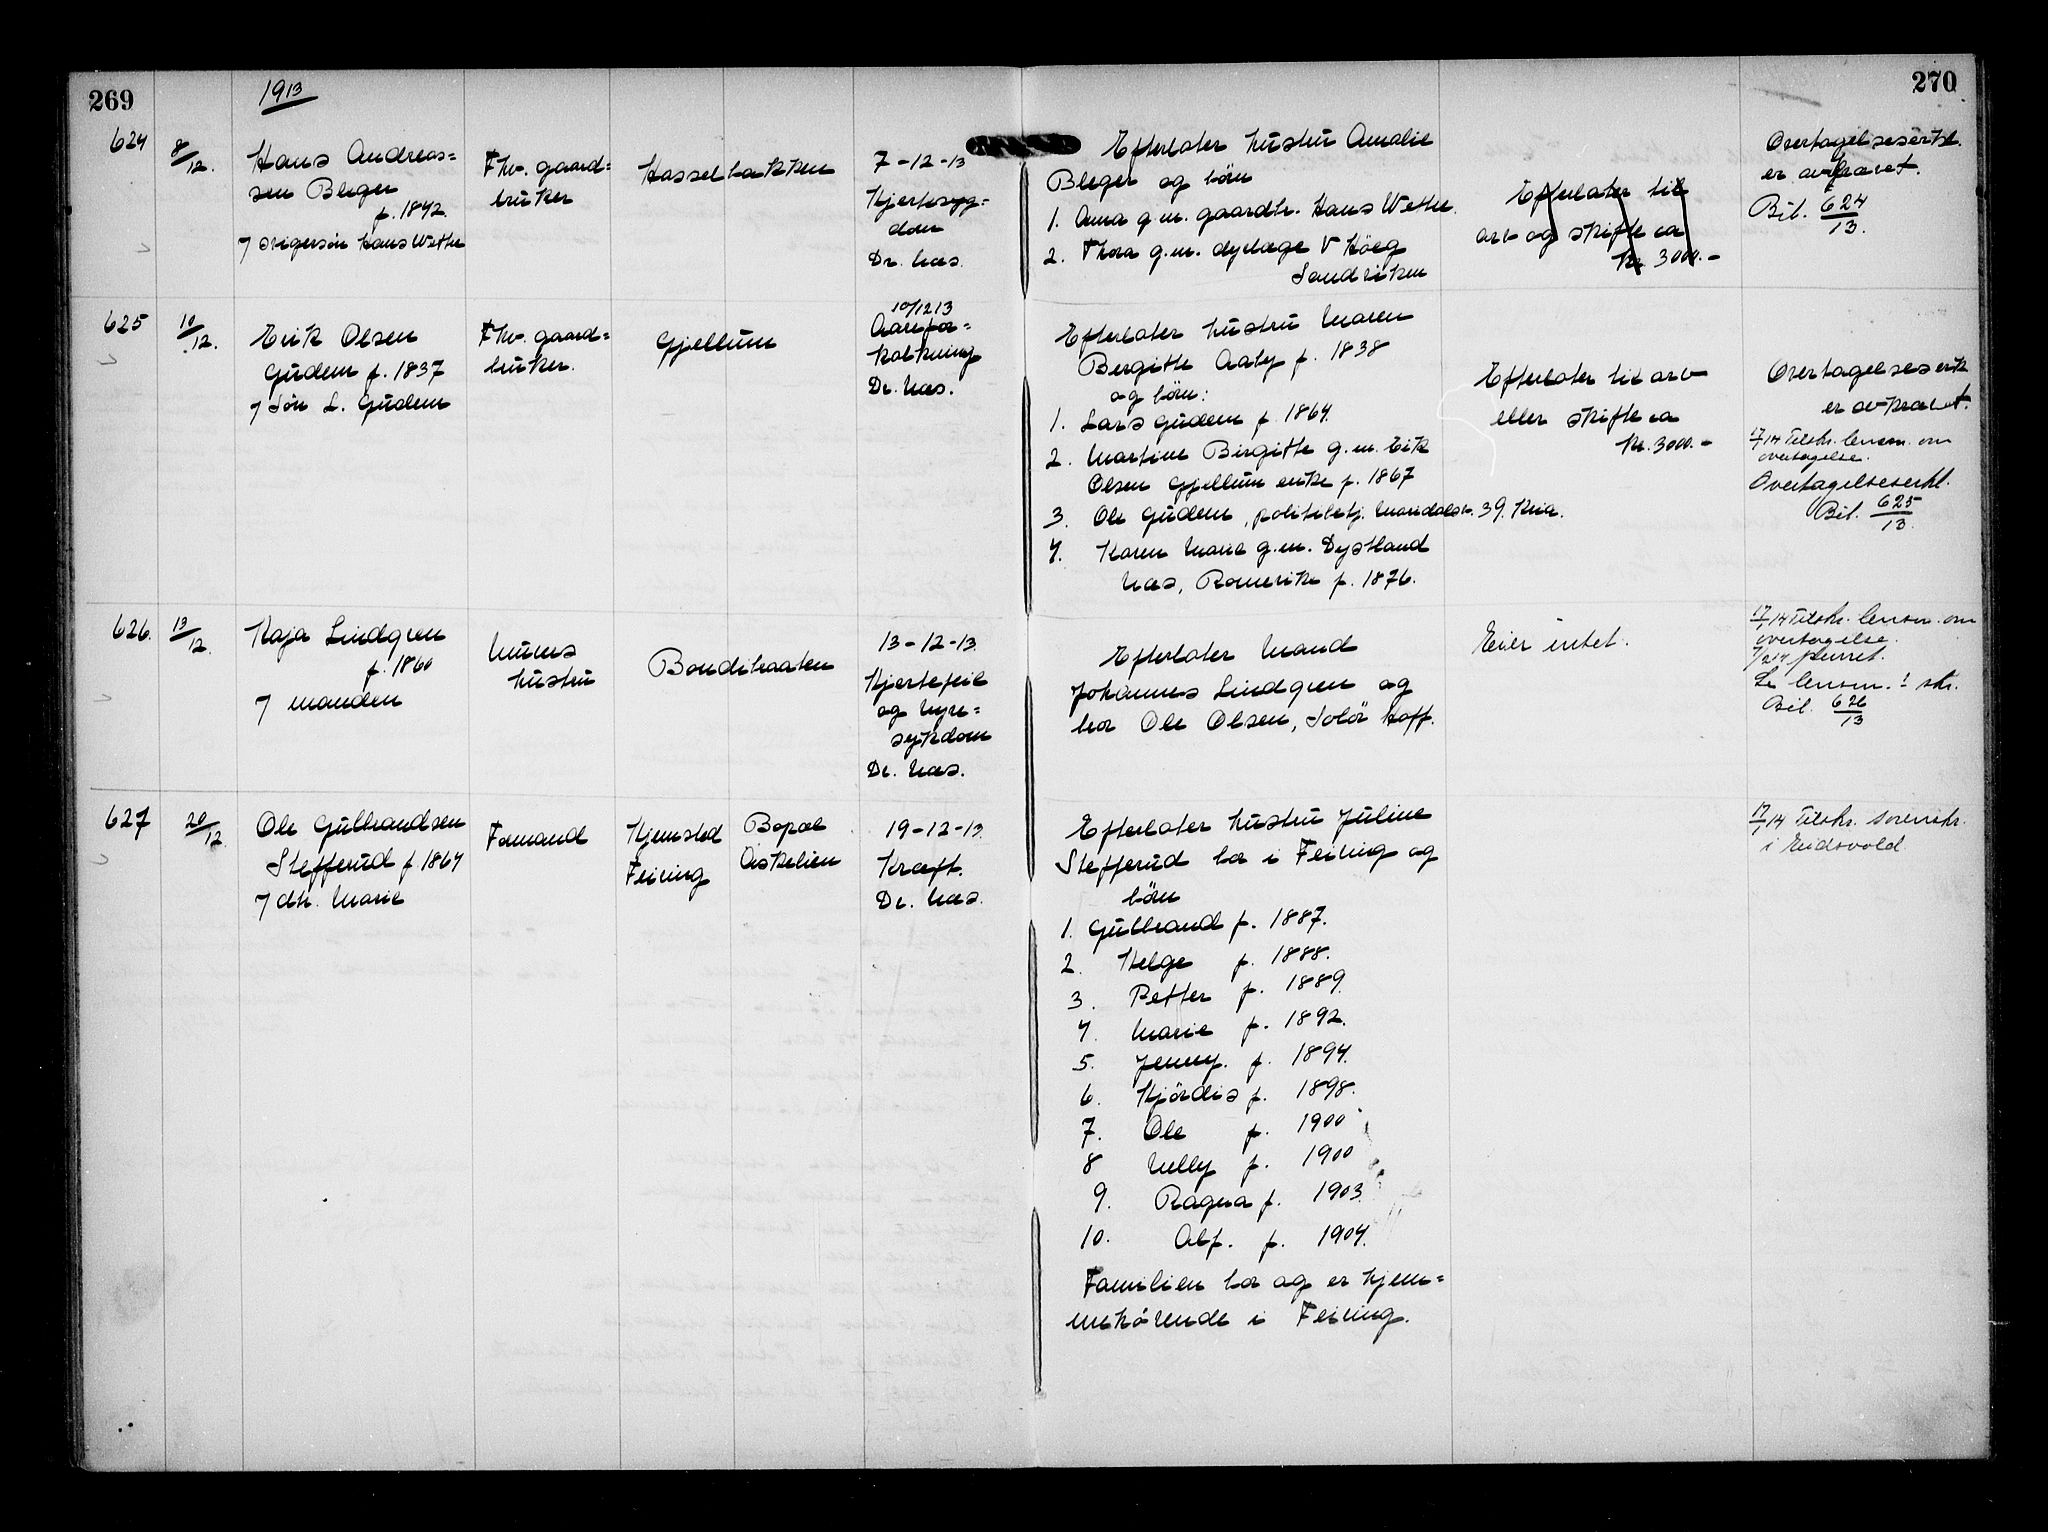 269
1913
270
624
8/12.
Hans Andreas=
sen Bleger
f. 1842.
/ svigersön Hans Wethe
Fhv. gaard=
bruker
Hasselbakken
7-12-13
Hjertesyg=
dom
Dr. Næs.
Efterlater hustru Amalie
Bleger og børn
1. Anna g.m. gaardbr. Hans Wethe.
2. Thora g.m. dyrlæge V Höeg
Sandviken
Efterlater til
arv og skifte ca
kr. 3000.-
Overtagelseserkl.
er avkrævet.
Bil. 624/13.
625
10/12.
Erik Olsen
Gudem f. 1837
/ Sön L. Gudem
Fhv. gaard=
bruker.
Gjellum
10/12 13
Aarefor=
kalkning
Dr. Næs.
Efterlater hustru Maren
Bergitte Aaby f. 1838
og börn:
1. Lars Gudem f. 1864.
2. Martine Birgitte g.m. Erik
Olsen Gjellum enke f. 1867
3. Ole Gudem, politibetj. 39. Kria.
4. Karen Marie g.m. Dystland
Næs, Romerike f. 1876.
Efterlater til arv
eller skifte ca
kr. 3000.-
Overtagelseserk
er avkrævet.
17/1 14 Tilskr. lensm. om
overtagelse.
Overtagelseserkl.
Bil. 625/13.
626.
13/12.
Kaja Lindgren
f. 1860
/ manden
Murers
hustru
Bondibraaten
13-12-13.
Hjertefeil
og nyre=
sykdom
Dr. Næs.
Efterlater mand
Johannes Lindgren og
bror Ole Olsen, Solör Hoff.
Eier intet.
17/1 14 Tilskr. lensm. om
overtagelse.
7/2 14 purret.
Se lensm.s skr.
Bil. 626/13
627
20/12.
Ole Gulbrandsen
Stefferud f. 1864
/ dtr. Marie
Formand
Hjemsted
Feiring
Bopæl
Askelien
19-12-13.
Kræft.
Dr. Næs.
Efterlater hustru Juline
Stefferud bor i Feiring og
börn
1. Gulbrand f. 1887.
2. Helge f. 1888.
3. Petter f. 1889.
4. Marie f. 1892.
5. Jenny. f. 1894.
6. Hjördis f. 1898.
7. Ole f. 1900
8 Nelly f. 1900
9. Ragna f. 1903.
10. Alf. f. 1904.
Familien bor og er hjem=
mehörende i Feiring.
17/1 14 Tilskr. sorenskr.
i Eidsvold.